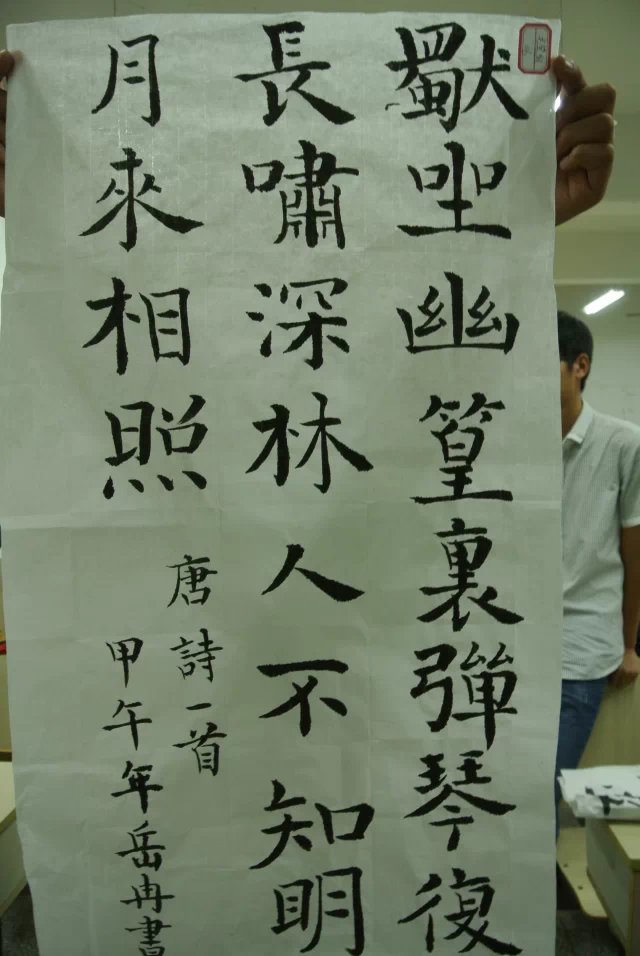 獨坐幽篁裏彈琴復
長嘯深林人不知明
月來相照
唐詩一首
甲午年岳冉書